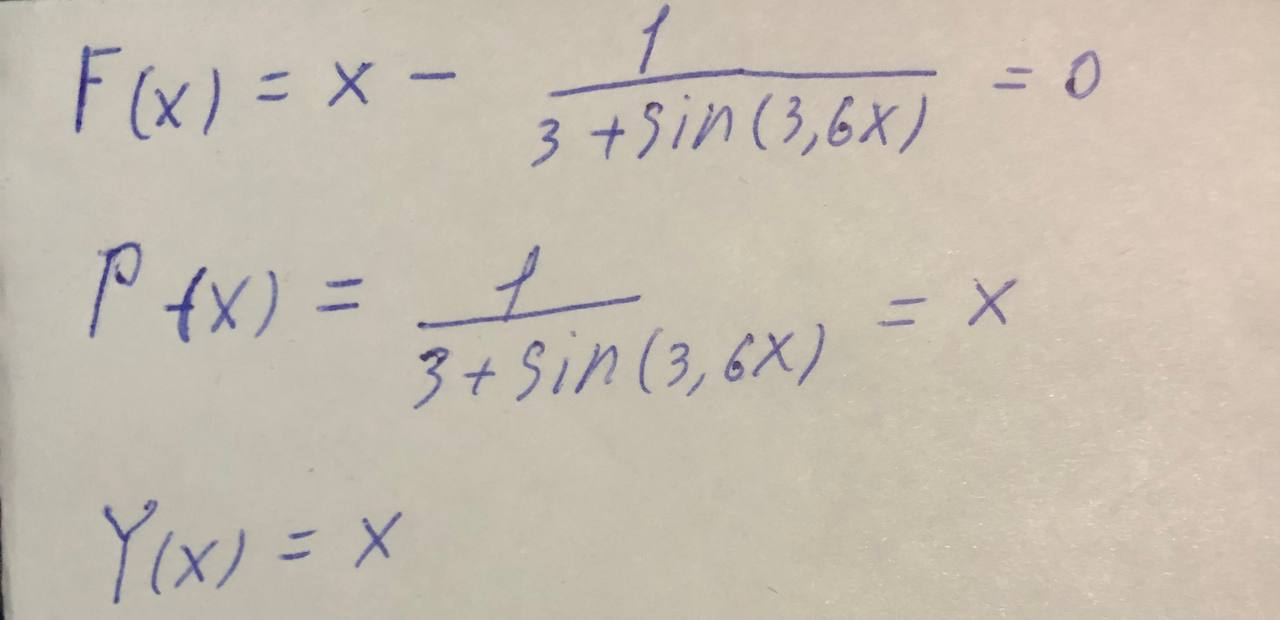 F(x) = x - 1/(3 + sin(3,6x)) = 0
P(x) = 1/(3 + sin(3,6x)) = x
Y(x) = x